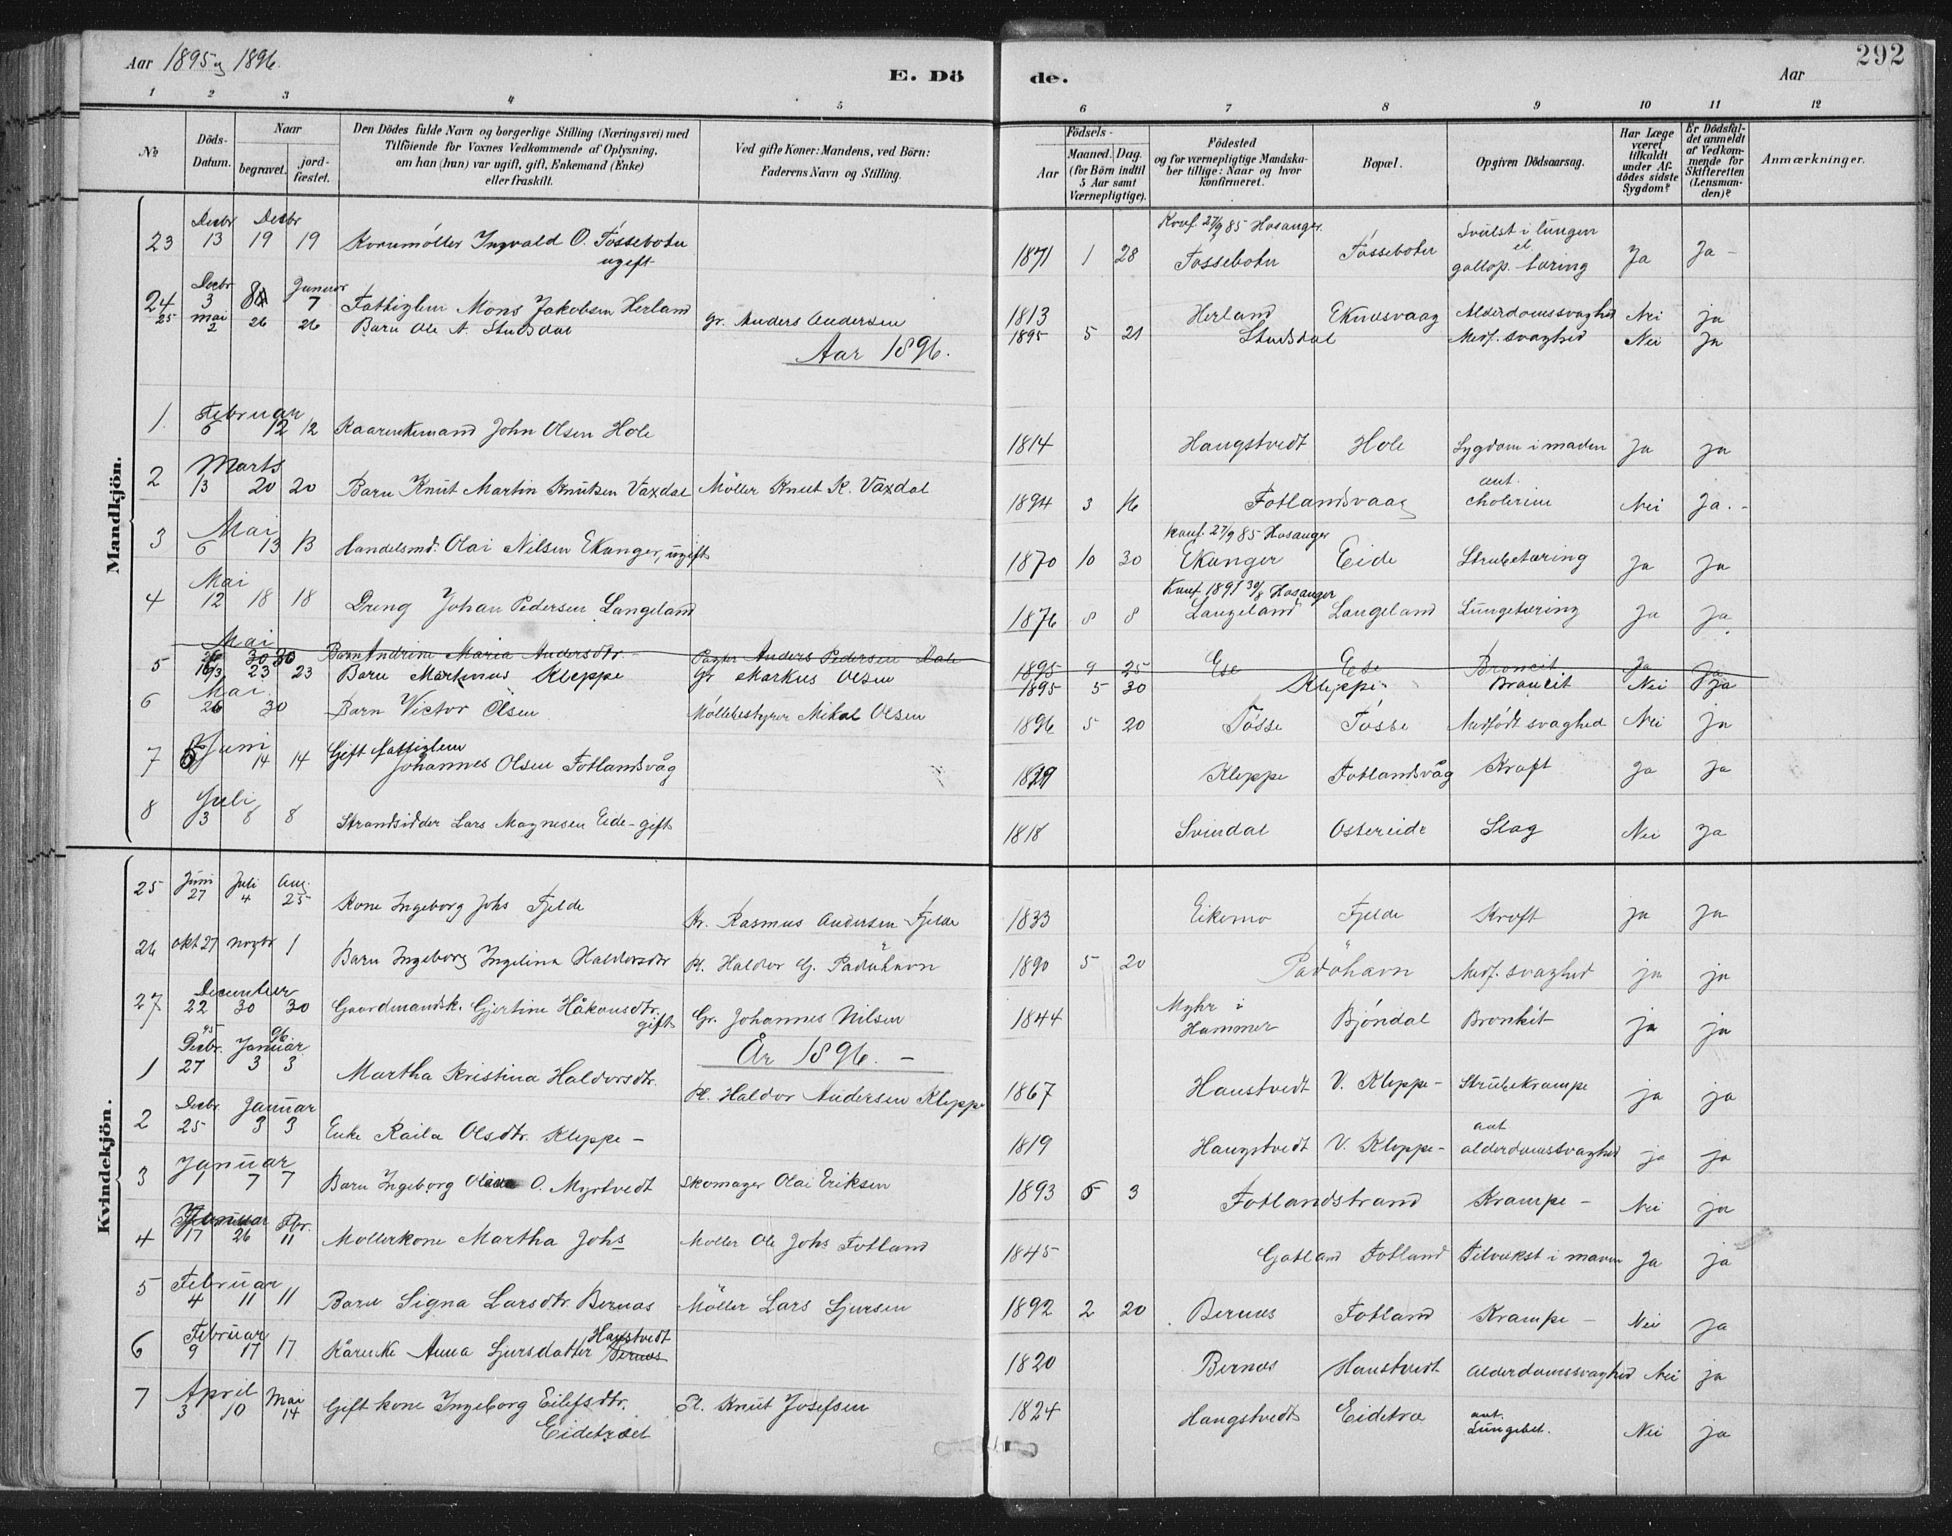 Aar 1895 og 1896.
E. Dö de.
Aar
292
1 2 3 4 5 6 7 8 9 10 11 12
№
Döds-Datum.
Naar
begravet.
jord-fæstet.
Den Dödes fulde Navn og borgerlige Stilling (Næringsvei) med
Tilföiende for Voxnes Vedkommende af Oplysning,
om han (hun) var ugift, gift, Enkemand (Enke)
eller fraskilt.
Ved gifte Koner: Mandens, ved Börn:
Faderens Navn og Stilling.
Födsels-
Aar
Maaned. Dag.
(for Börn indtil
5 Aar samt
Værnepligtige).
Födested
og for værnepligtige Mandska-
ber tillige: Naar og hvor
konfirmeret.
Bopæl.
Opgiven Dödsaarsag.
Har Læge
været
tilkaldt
under Af-
dödes sidste
Sygdom?
Er Dödsfal-
det anmeldt
af Vedkom-
mende for
Skifteretten
(Lensman-
den)?
Anmærkninger.
Mandkjön.
Decbr Decbr
23 13 19 19 Kornmøller Ingvald O. Tøssebotn ugift 1871 1 28 Konf. 27/9 85 Hosanger. Tøssebotn Tøssebotn Svulst i lungen el gallop. tæring Ja Ja -
24 Decbr 3 Januar 7 Fattiglem Mons Jakobsen Herland 1813 Herland Eknæsvaag Alderdomssvaghed Nei ja
25 mai 2 26 26 Barn Ole A. Studsdal Gr. Anders Andersen 1895 5 21 Studsdal Medf. svaghed Nei Ja
Aar 1896.
1. Februar 6 12 12 Kaarenkemand John Olsen Hole 1814 Haugstvedt Hole Sygdom i maven Ja ja
2 Marts 13 20 20 Barn Knut Martin Knutsen Vaxdal Møller Knut K. Vaxdal 1894 3 16 Fotlandsvaag ant. cholerine Nei Ja. -
3 Mai 6 13 13 Handelsmd. Olai Nilsen Ekanger, ugift 1870 10 30 Konf. 27/9 85 Hosanger Ekanger Eide Strubetæring Ja Ja
4 Mai 12 18 18 Dreng Johan Pedersen Langeland 1876 8 8 Konf. 1891 30/8 Hosanger Langeland Langeland Lungetæring Ja Ja
Mai 26 30 30 Barn Andrine Maria Andersdtr. Pagter Anders Pedersen Dale 1895 9 25 Ese Ese Broncit Ja Ja
5 16/3 23 23 Barn Martinus Kleppe Gr Markus Olsen 1895 5 30 Kleppe - Broncit Nei Ja
6 Mai. 26 30 Barn Victor Olsen Møllebestyrer Mikal Olsen 1896 5 20 Tøsse Tøsse Medfødt svaghed Nei ja
7 Juni 14 14 Gift fattiglem Johannes Olsen Fotlandsvåg Kleppe Fotlandsvåg Kræft Ja Ja
8 Juli 3 8 8 Strandsidder Lars Magnesen Eide - gift 1818 Svindal Ostereide Slag Nei Ja
Kvindekjön.
25 Juni 27 Juli 4 Aug. 25 Kone Ingeborg Johs Fjelde Kr. Rasmus Andersen Fjelde 1833 Eikemo Fjelde Kræft ja ja
26 Okt 27 Novbr 1 Barn Ingeborg Ingelina Haldorsdtr Pl. Haldor G. Padöhavn 1890 5 20 Padöhavn Medf. svaghed ja ja
27 December 22 30 30 Gaardmandsk. Gjertine Håkonsdtr. gift Gr. Johannes Nilsen 1844 Myhr i Hammer Bjöndal Bronkit ja ja
År 1896. -
1 95 Decbr. 27 Januar 96 3 3 Martha Kristina Haldorsdtr. Pl. Haldor Andersen Kleppe 1867 Haustvedt V. Kleppe - Strubekrampe ja ja
2 Decbr. 25 Januar 3 3 Enke Raila Olsdtr. Kleppe - 1819 Haugstvedt V. Kleppe - ant alderdomssvaghed ja ja
3 Januar 1 7 7 Barn Ingeborg Olina O. Myrtvedt Skomager Olai Eriksen 1893 6 3 Fotlandstrand Krampe - Nei ja
4 Januar 17 26 Fbr. 11 Møllerkone Martha Johs Møller Ole Johs Fotland 1845 Gotland Fotland Tilvækst i maven Ja ja
5 Februar 4 11 11 Barn Signa Larsdtr. Bernæs Möller Lars Sjursen 1892 2 20 Bernæs Fotland Krampe - Nei ja
6 Februar 9 17 17 Kårenke Anna Sjursdatter Bernæs Haustvedt 1820 Bernæs Haustvedt Alderdomssvaghed Nei ja
7 April 3 10 Mai 14 Gift kone Ingeborg Eilefsdtr. Eidetræet Pl. Knut Josefsen 1824 Haugstvedt Eidetræ ant. Lungebet. Nei ja